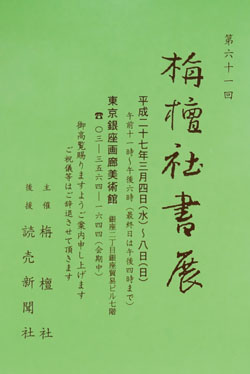 第六十一回
栴檀社書展
平成二十七年三月四日(水)〜八日(日)
午前十一時〜午後六時(最終日は午後四時まで)
東京銀座画廊美術館
銀座二丁目銀座貿易ビル七階
☎〇三―三五六四―一六四四(会期中)
御高覧賜りますようご案内申し上げます
ご祝儀等はご辞退させて頂きます
主催 栴檀社
後援 読売新聞社